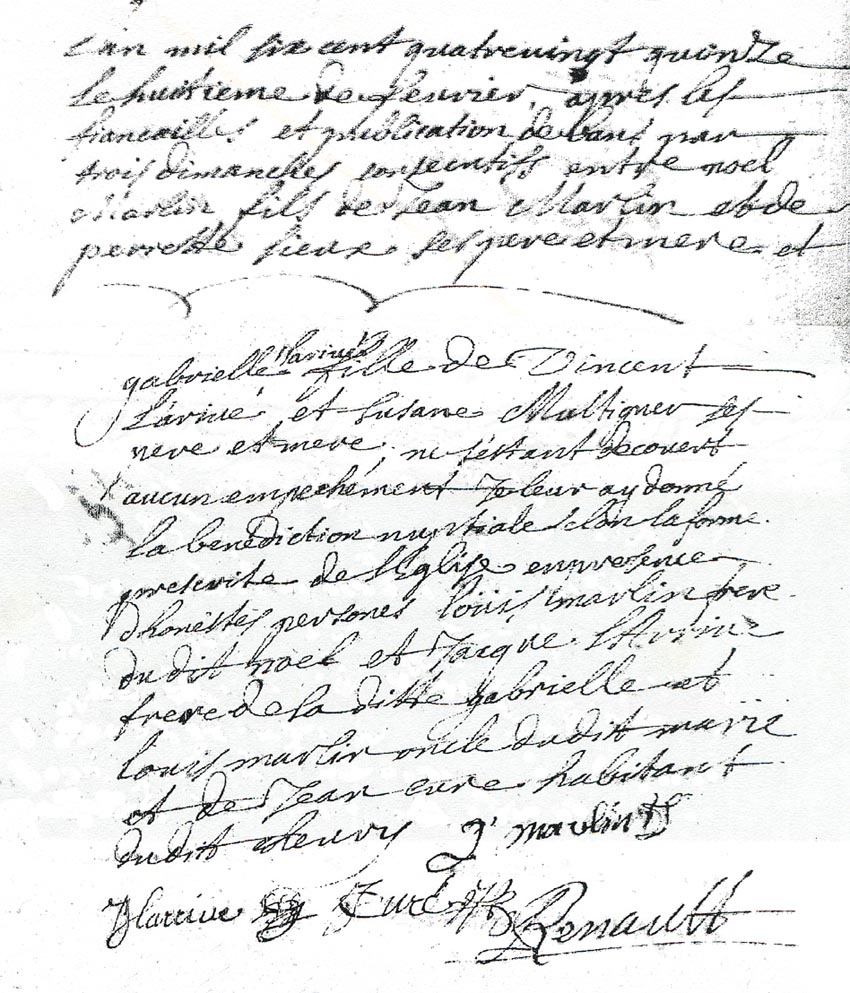 L'an mil six cent quatrevingt quinze
le huitieme de feuvier, apres les
fiancailles et publication de bans par
trois dimanches consecutifs entre noel
Marlin fils de Jean Marlin et de
perrette sieux ses pere et mere et
gabrielle Larivé fille de Vincent
Larivé et susane Multigner ses
pere et mere, ne séstant decouert
aucun empechément Je leur ay donné
la benediction nuptiale selon la forme
prescrite de l'Eglise en presence
dhonéstes persones loüis marlin frere
du dit noel et Jacque LArrive
frere de la ditte gabrielle et
louis marlin oncle dudit marié
et de Jean cure habitant
dudit fleury J marlin
J larrive Juré Renault